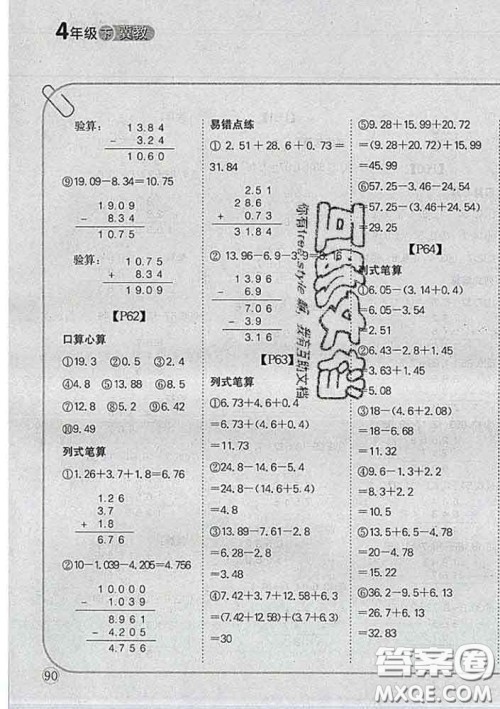 4年级 下 冀教
验算： 13.84
- 3.24
10.60
⑨19.09-8.34=10.75
19.09
- 8.34
10.75
验算： 10.75
+ 8.34
19.09
【P62】
口算心算
①19.3 ②0.5 ③2.4
④4.8 ⑤13.88 ⑥8.5
⑦12.8 ⑧5.2 ⑨6.42
⑩9.49
列式笔算
①1.26+3.7+1.8=6.76
1.26
3.7
+ 1.8
6.76
②10-1.039-4.205=4.756
10.000
- 1.039
8.961
- 4.205
4.756
90
易错点练
①2.51+28.6+0.73=
31.84
2.51
28.6
+ 0.73
31.84
②13.96-6.9-3.9=3.16
13.96
- 6.9
7.06
- 3.9
3.16
【P63】
列式笔算
①6.73+4.6+0.4
=6.73+(4.6+0.4)
=11.73
②24.8-14.6-5.4
=24.8-(14.6+5.4)
=4.8
③13.89-7.61-2.8
=6.28-2.8
=3.48
④7.42+3.7+12.58+6.3
=(7.42+12.58)+(3.7+6.3)
=30
⑤9.28+15.99+20.72
=(9.28+20.72)+15.99
=45.99
⑥57.25-3.46-24.54
=57.25-(3.46+24.54)
=29.25
【P64】
列式笔算
①6.05-(3.14+0.4)
=6.05-3.54
=2.51
②6.43-2.8+1.45
=3.63+1.45
=5.08
③18-(4.6+2.08)
=18-6.68
=11.32
④9.6-1.3+2.2
=8.3+2.2
=10.5
⑤13.5+6.5-4.78
=20-4.78
=15.22
⑥36.2-9.5+6.13
=26.7+6.13
=32.83
互助文档
你有free style 题，我有互助文档
答案圈
MXQE.COM